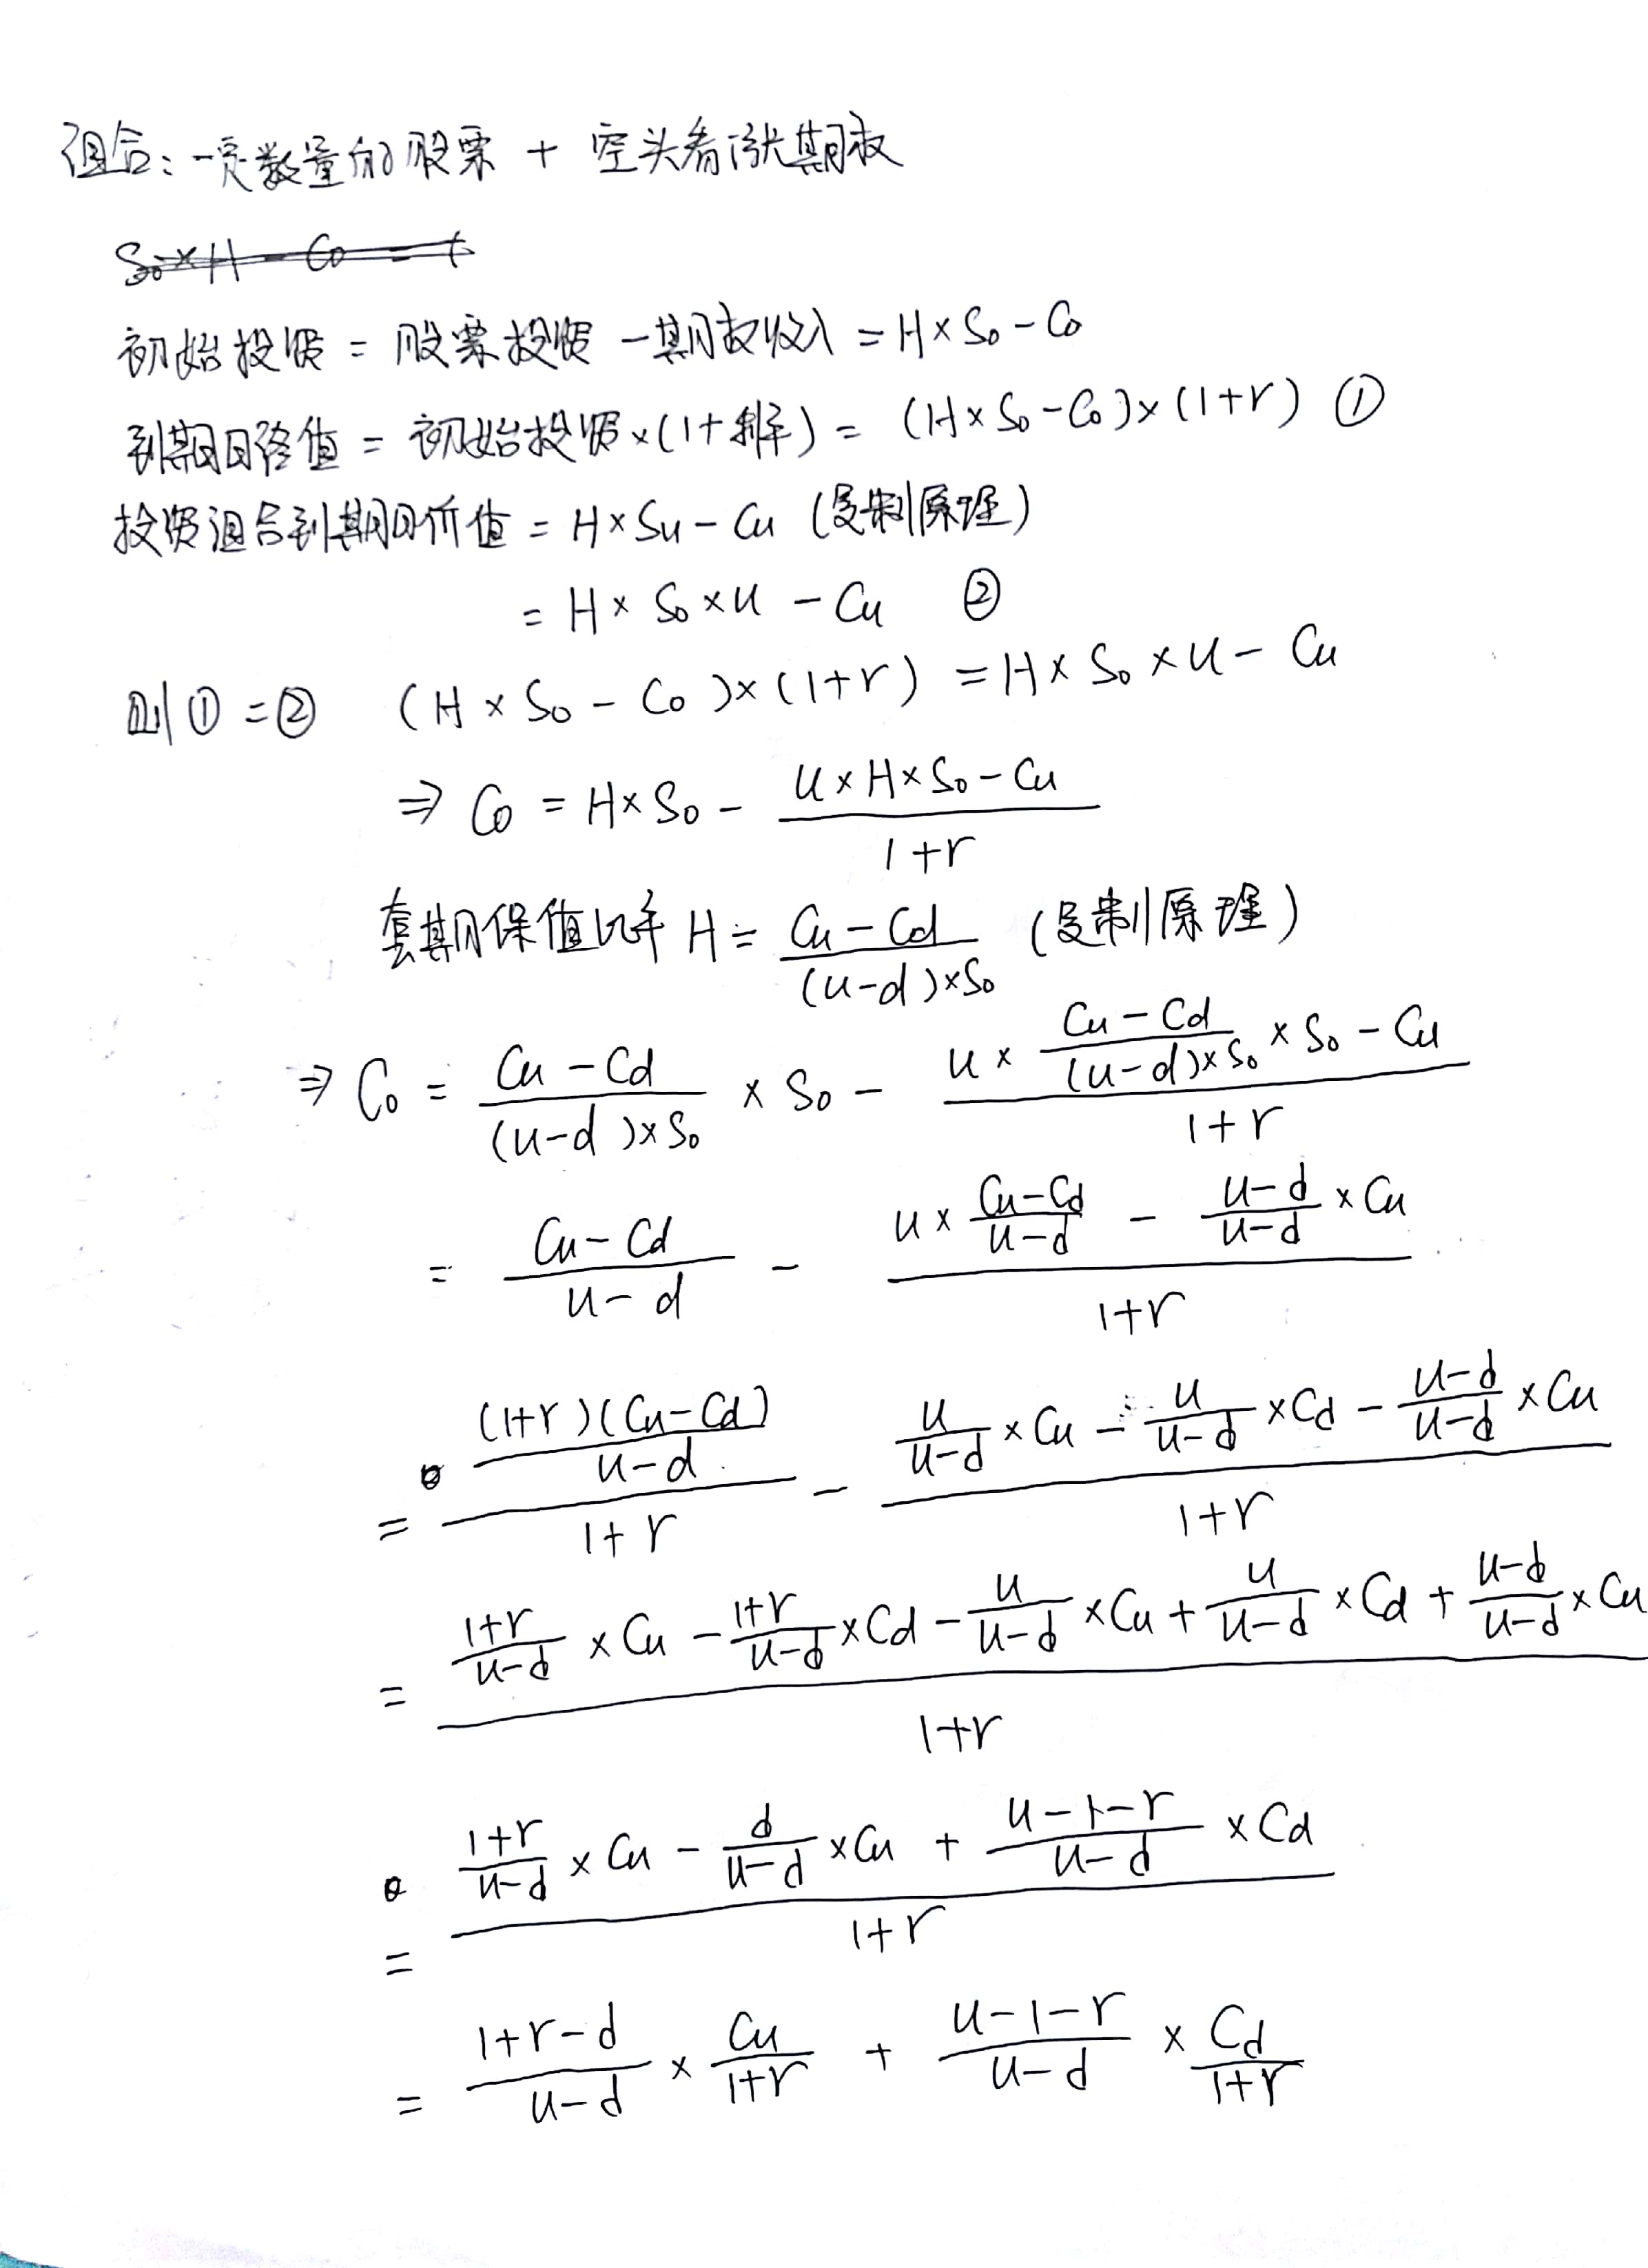 组合：一定数量的股票 + 空头看涨期权
S₀×H - C₀ =
初始投资 = 股票投资 - 期权收入 = H×S₀ - C₀
到期日终值 = 初始投资×(1+利率) = (H×S₀-C₀)×(1+r) ①
投资组合到期日价值 = H×Su - Cu (复制原理)
= H×S₀×u - Cu ②
则①=② (H×S₀-C₀)×(1+r) = H×S₀×u - Cu
⇒ C₀ = H×S₀ - (u×H×S₀-Cu)/(1+r)
套期保值比率 H = (Cu-Cd)/((u-d)×S₀) (复制原理)
⇒ C₀ = (Cu-Cd)/((u-d)×S₀) × S₀ - (u × (Cu-Cd)/((u-d)×S₀) × S₀ - Cu)/(1+r)
= (Cu-Cd)/(u-d) - (u × (Cu-Cd)/(u-d) - (u-d)/(u-d) × Cu)/(1+r)
= ((1+r)(Cu-Cd)/(u-d))/(1+r) - (u/(u-d) × Cu - u/(u-d) × Cd - (u-d)/(u-d) × Cu)/(1+r)
= ((1+r)/(u-d) × Cu - (1+r)/(u-d) × Cd - u/(u-d) × Cu + u/(u-d) × Cd + (u-d)/(u-d) × Cu)/(1+r)
= ((1+r)/(u-d) × Cu - d/(u-d) × Cu + (u-1-r)/(u-d) × Cd)/(1+r)
= (1+r-d)/(u-d) × Cu/(1+r) + (u-1-r)/(u-d) × Cd/(1+r)